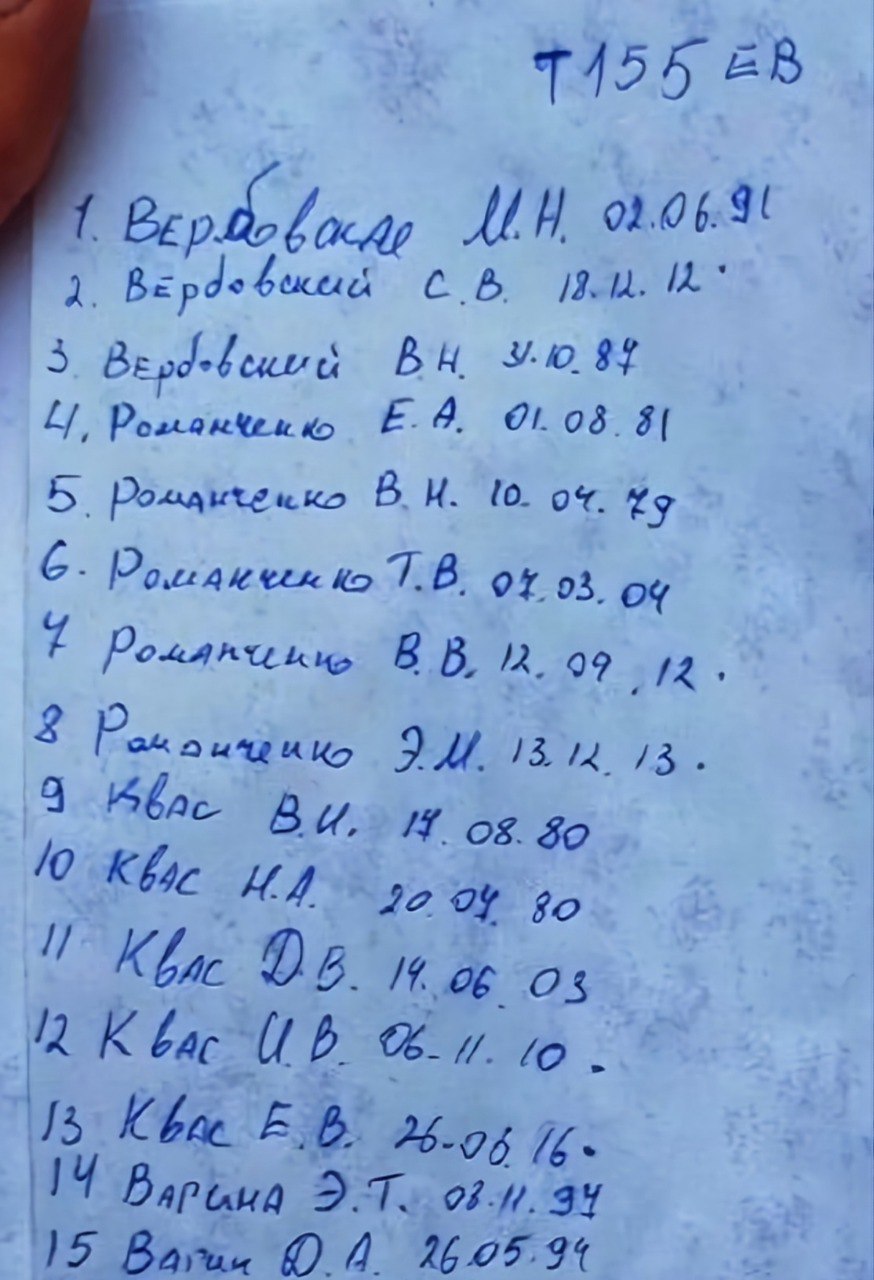 Т155 ЕВ
1. Вербовская М.Н. 02.06.91
2. Вербовский С.В. 18.12.12.
3. Вербовский В.Н. 31.10.87
4. Романченко Е.А. 01.08.81
5. Романченко В.Н. 10.04.79
6. Романченко Т.В. 07.03.04
7 Романченко В.В. 12.09.12.
8 Романченко Э.М. 13.12.13.
9 Квас В.И. 17.08.80
10 Квас Н.А. 20.07.80
11 Квас Д.В. 14.06.03
12 Квас И.В. 06-11.10.
13 Квас Е.В. 26-06.16.
14 Вагина Э.Т. 03.11.97
15 Вагин Д.А. 26.05.94